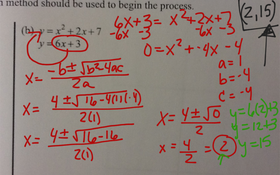 n method should be used to begin the process.
(2,15)
(b) y = x² + 2x + 7
y = 6x + 3
6x+3 = x²+2x+7
-6x -3 -6x -3
0 = x² + -4x - 4
a = 1
b = -4
c = -4
x = -b ± √b²-4ac / 2a
x = 4 ± √16-4(1)(-4) / 2(1)
x = 4 ± √16-16 / 2(1)
x = 4 ± √0 / 2
x = 4/2 = 2
y = 6(2)+3
y = 12+3
y = 15